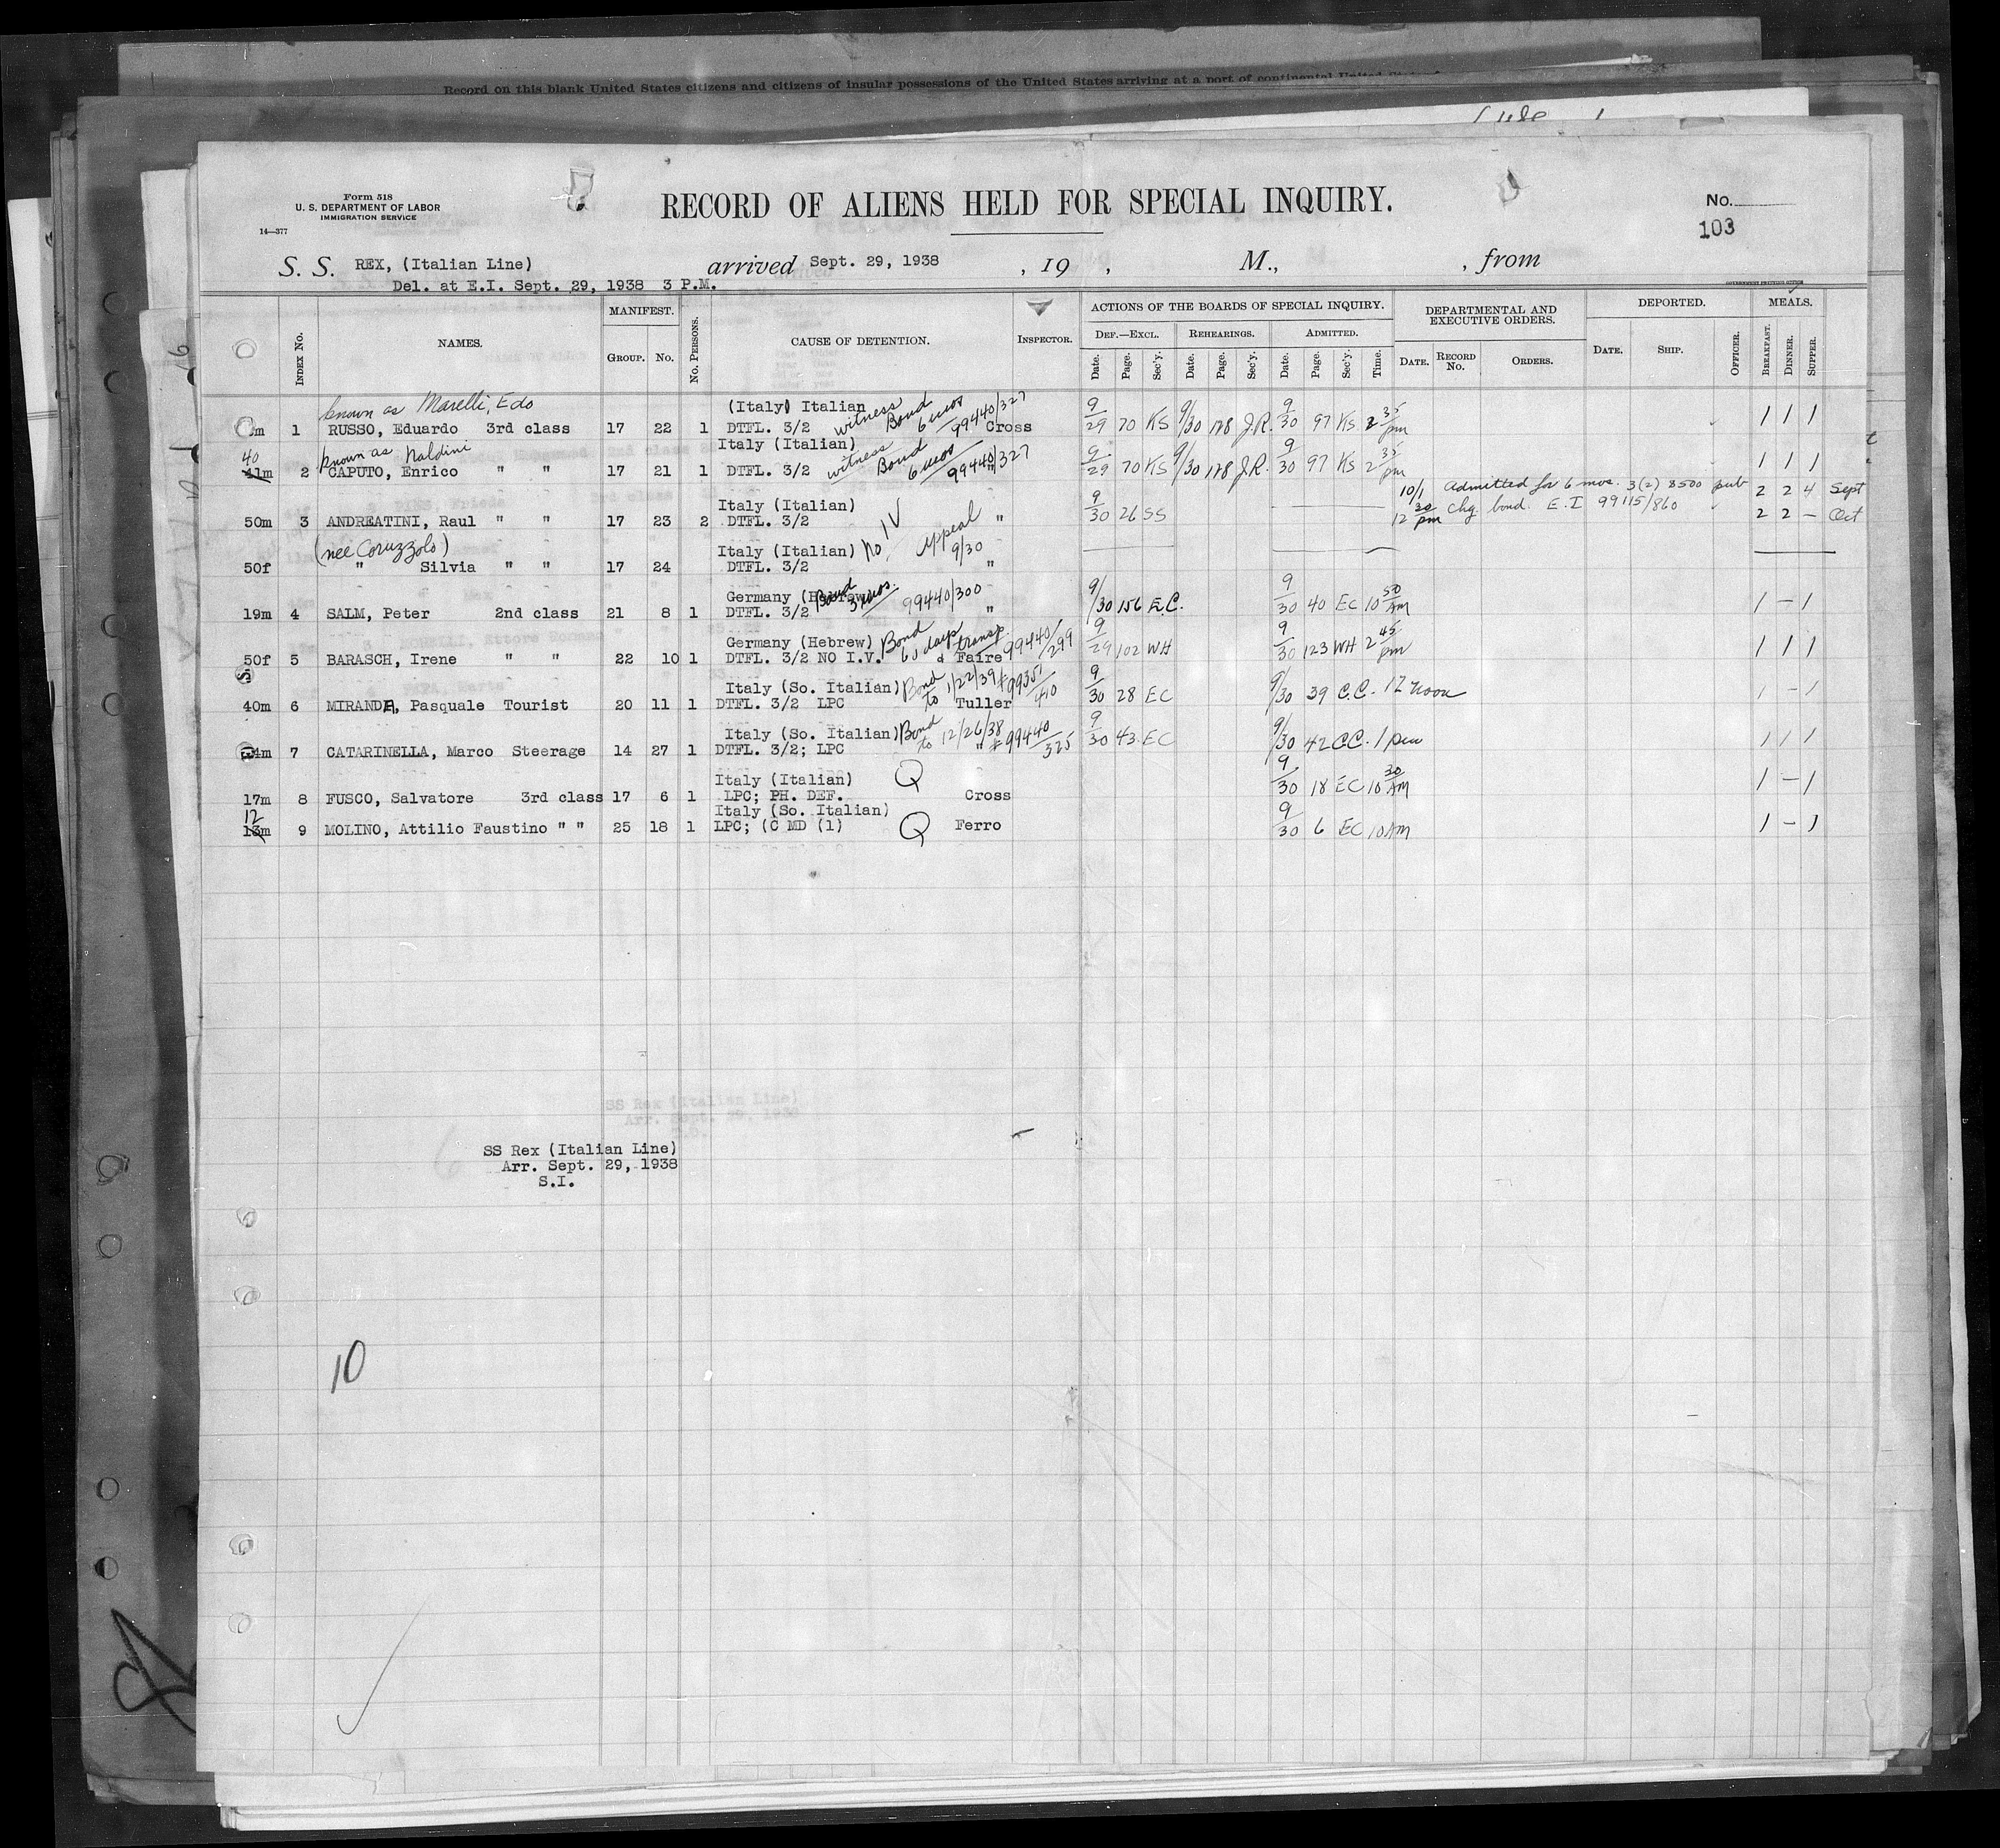 Record on this blank United States citizens and citizens of insular possessions of the United States arriving at a port of continental United States
Form 518
U. S. DEPARTMENT OF LABOR
IMMIGRATION SERVICE
14—377
RECORD OF ALIENS HELD FOR SPECIAL INQUIRY.
No.
103
S. S. REX, (Italian Line) arrived Sept. 29, 1938 , 19 , M., , from
Del. at E.I. Sept. 29, 1938 3 P.M.
GOVERNMENT PRINTING OFFICE
INDEX NO. NAMES. MANIFEST. GROUP. NO. NO. PERSONS. CAUSE OF DETENTION. INSPECTOR. ACTIONS OF THE BOARDS OF SPECIAL INQUIRY. DEPARTMENTAL AND EXECUTIVE ORDERS. DEPORTED. MEALS.
DEF.—EXCL. REHEARINGS. ADMITTED.
Date. Page. Sec'y. Date. Page. Sec'y. Date. Page. Sec'y. Time. DATE. RECORD NO. ORDERS. DATE. SHIP. OFFICER. BREAKFAST. DINNER. SUPPER.
known as Marelli, Edo (Italy) Italian witness Bond 6 mos 99440/327
m 1 RUSSO, Eduardo 3rd class 17 22 1 DTFL. 3/2 Cross 9/29 70 KS 9/30 178 J.R. 9/30 97 KS 2 35 pm 1 1 1
40 known as Naldini Italy (Italian) witness Bond 6 mos 99440/327
41m 2 CAPUTO, Enrico " " 17 21 1 DTFL. 3/2 " 9/29 70 KS 9/30 178 J.R. 9/30 97 KS 2 35 pm 1 1 1
Italy (Italian) 10/1 Admitted for 6 mos. 3(2) \8500 pub 2 2 4 Sept
50m 3 ANDREATINI, Raul " " 17 23 2 DTFL. 3/2 " 9/30 26 SS 12 30 pm chg. bond. E. I 99115/860 2 2 — Oct
(nee Coruzzolo) Italy (Italian) No IV Appeal 9/30
50f " Silvia " " 17 24 DTFL. 3/2 "
Germany (Hebrew) Bond 3 mos. 99440/300
19m 4 SALM, Peter 2nd class 21 8 1 DTFL. 3/2 " 9/30 156 E.C. 9/30 40 EC 10 50 AM 1 – 1
Germany (Hebrew) Bond 60 days & transp. 99440/299
50f 5 BARASCH, Irene " " 22 10 1 DTFL. 3/2 NO I.V. Faire 9/29 102 WH 9/30 123 WH 2 45 pm 1 1 1
Italy (So. Italian) Bond to 1/22/39 # 99351/410
40m 6 MIRANDA, Pasquale Tourist 20 11 1 DTFL. 3/2 LPC Tuller 9/30 28 EC 9/30 39 C.C. 12 noon 1 – 1
Italy (So. Italian) Bond to 12/26/38 # 99440/325
4m 7 CATARINELLA, Marco Steerage 14 27 1 DTFL. 3/2; LPC " 9/30 43 EC 9/30 42 C.C. 1 pm 1 1 1
Italy (Italian) Q
17m 8 FUSCO, Salvatore 3rd class 17 6 1 LPC; PH. DEF. Cross 9/30 18 EC 10 30 AM 1 – 1
12 Italy (So. Italian)
13m 9 MOLINO, Attilio Faustino " " 25 18 1 LPC; (C MD (1) Q Ferro 9/30 6 EC 10 AM 1 – 1
SS Rex (Italian Line)
Arr. Sept. 29, 1938
S.I.
10